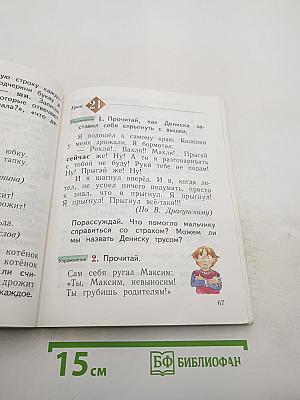 ую строку каждо
дчеркни букву и
— шм. Запиш
которые отвечаю
ала?», «что де
юбку.
тапку.
шина)
дрожит!
слов)
котёнок
котёнок
ли счи-
дрожит
каждое.
Урок 21
Упражнение 1. Прочитай, как Дениска за-
ставил себя спрыгнуть с вышки.
Я подошёл к самому краю. Коленки
у меня дрожали. Я бормотал:
— Рохля!.. Вахля!! Махля! Прыгай
сейчас же! Ну! А то я разговаривать
с тобой не буду! Руки тебе не подам!
Ну! Прыгай же! Ну!
И я шагнул вперёд. И я, когда ле-
тел, не успел ничего подумать, просто
я знал, что я прыгнул. Я прыгнул!
Я прыгнул! Прыгнул всё-таки!!!
(По В. Драгунскому)
Порассуждай. Что помогло мальчику
справиться со страхом? Можем ли
мы назвать Дениску трусом?
Упражнение 2. Прочитай.
Сам себя ругал Максим:
«Ты, Максим, невыносим!
Ты грубишь родителям!»
67
15 см
БФ БИБЛИОФАН